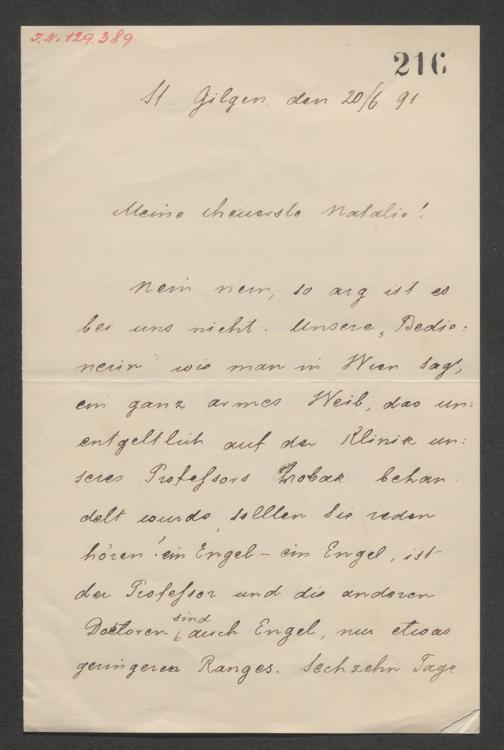 J.N. 129.389
216
St. Gilgen den 20/6 91
Meine theuerste Natalie!
Nein nein, so arg ist es
bei uns nicht. Unsere „Bedie:
nerin" wie man in Wien sagt,
ein ganz armes Weib, das un:
entgeltlich auf der Klinik un:
seres Professors Chrobak behan:
delt wurde, sollten Sie reden
hören! ein Engel – ein Engel, ist
der Professor und die anderen
Doctoren sind auch Engel, nur etwas
geringeren Ranges. Sechzehn Tage